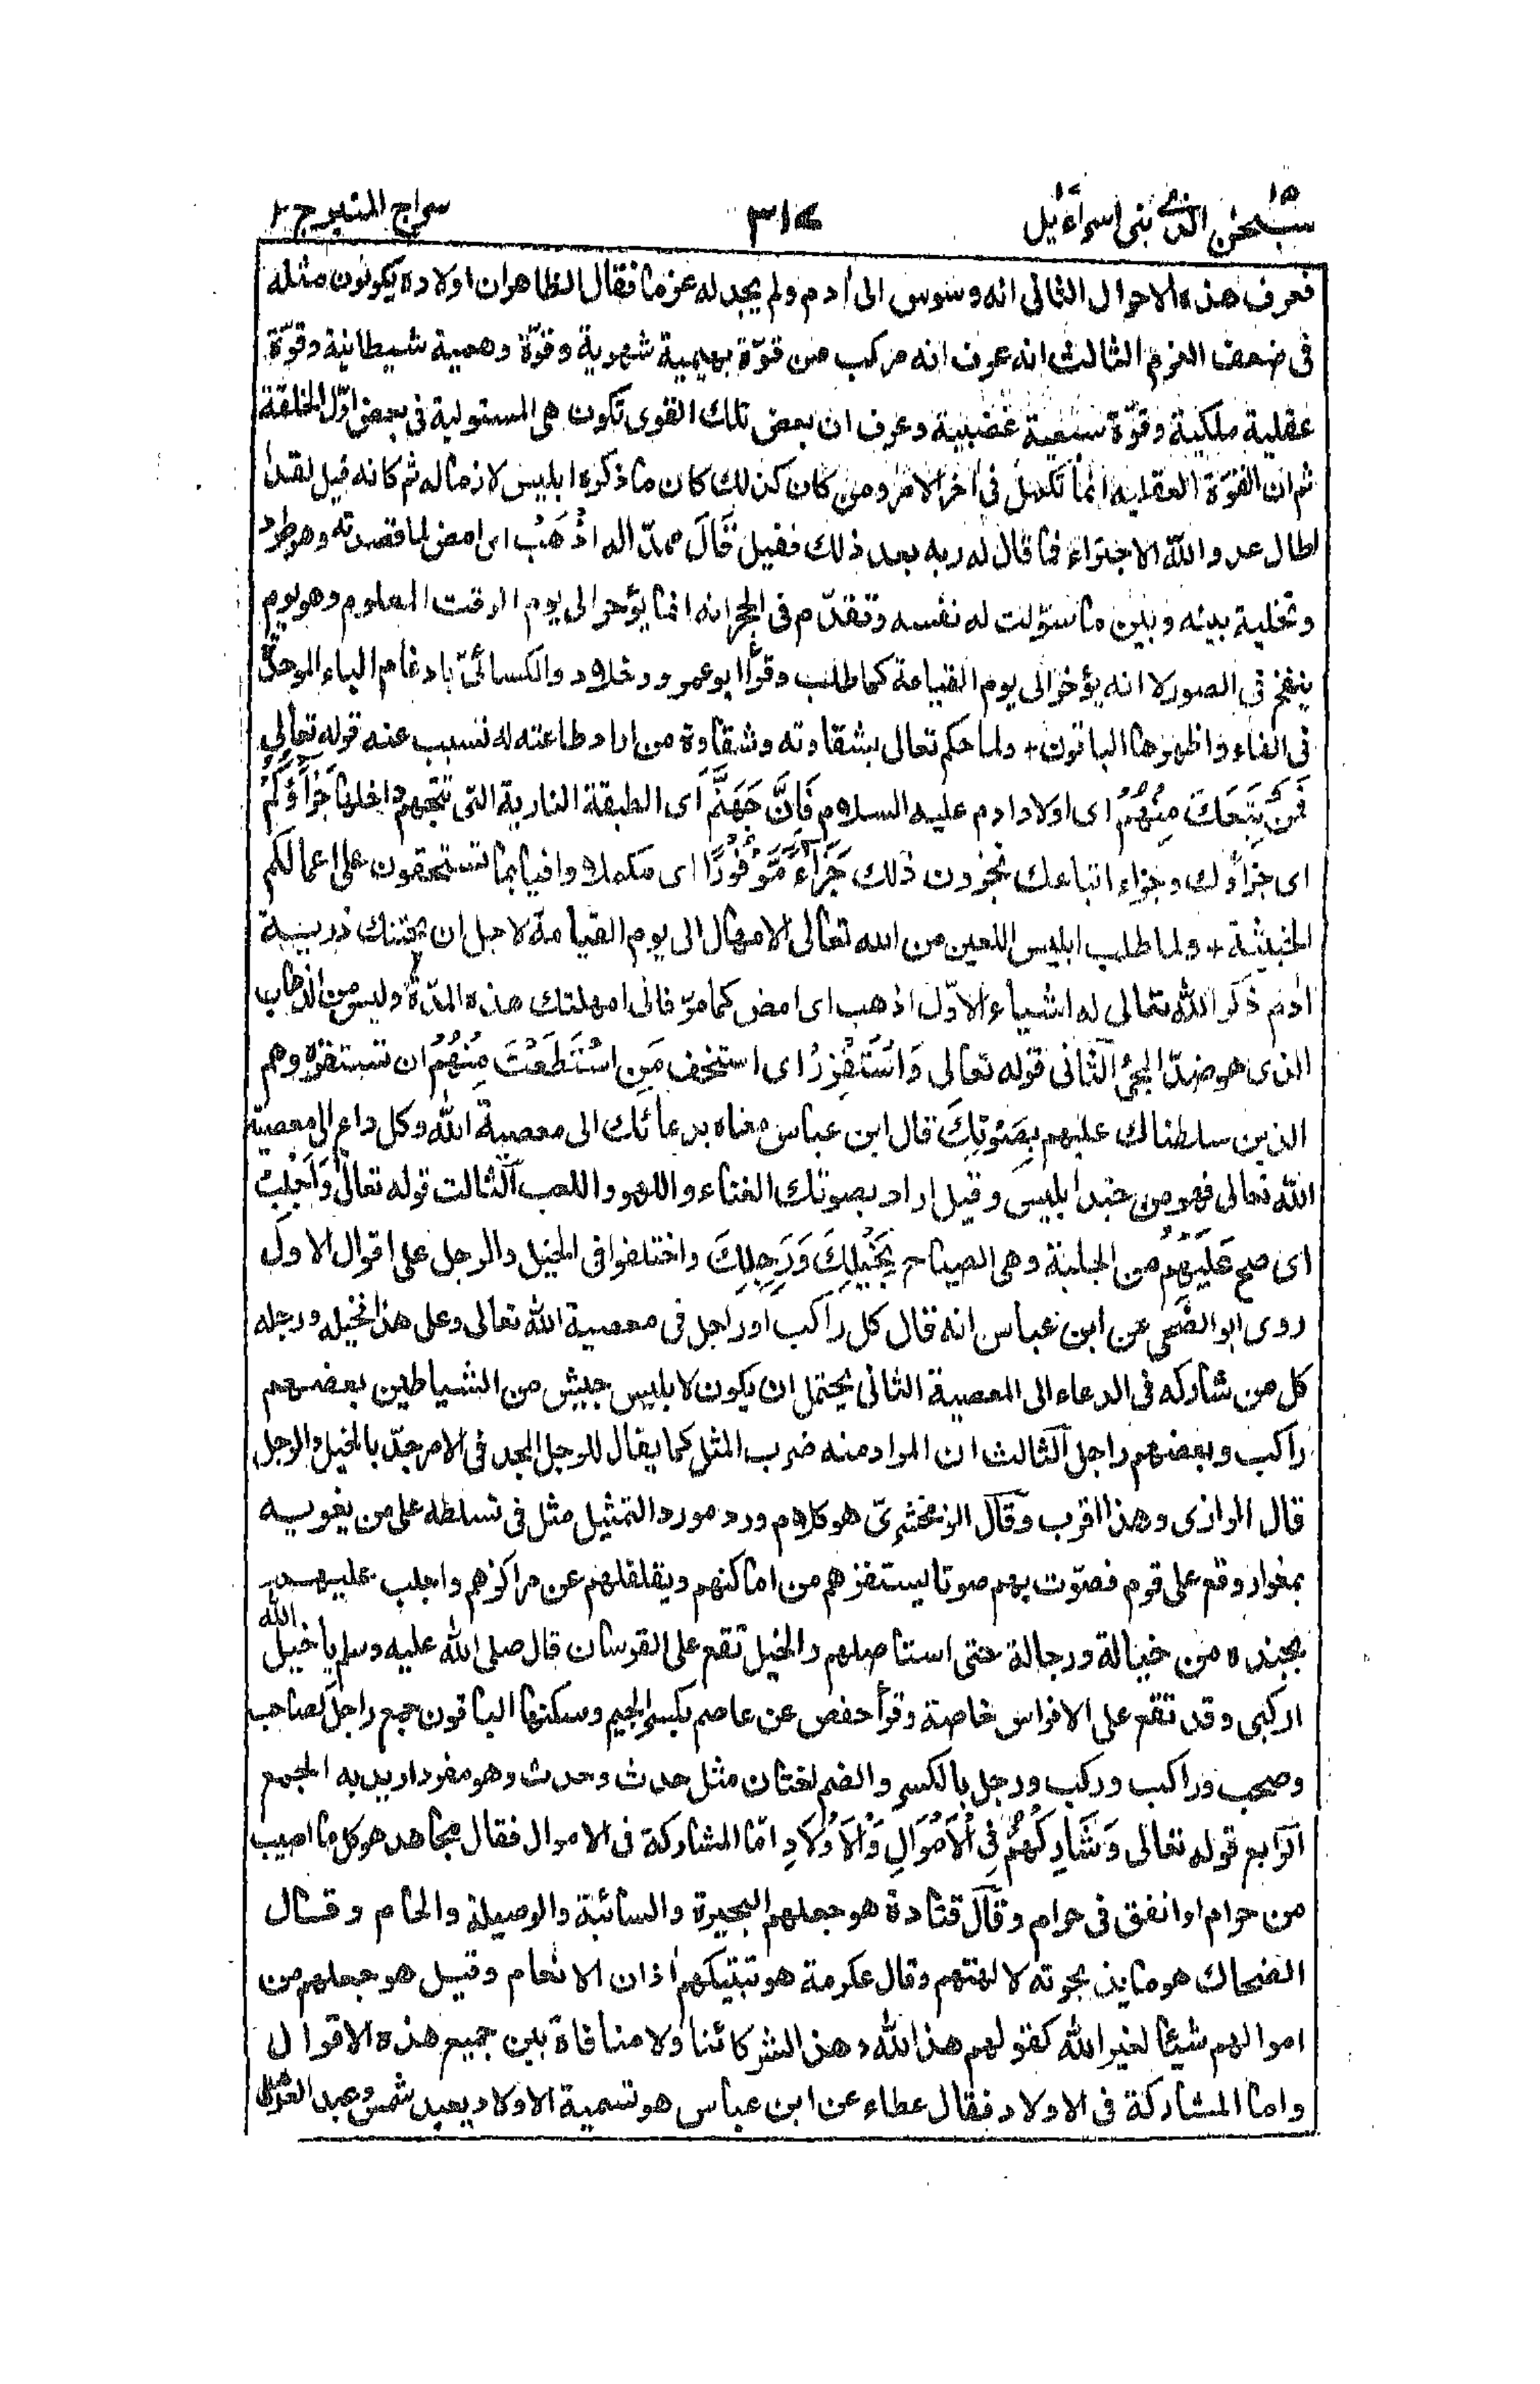 سبحٰن الذى ١٥ بنى اسرآءيل
٣١٤
سراج المنير ج ٢
فعرف هذه الاحوال الثانى انه وسوس الى اٰدم ولم يجد له عزما فقال الظاهر ان اولاده يكونون مثله
فى ضعف العزم الثالث انه عرف انه مركب من قوّة بهيمية شهوية وقوّة وهمية شيطانية وقوّة
عقلية ملكية وقوّة سبعية غضبية وعرف ان بعض تلك القوى تكون هى المستولية فى بعض اوّل الخلقة
ثم ان القوّة العقلية انما تكمل فى اٰخر الامر ومن كان كذلك كان ما ذكره ابليس لازما له ثم كانه قيل لقد
اطال عدو الله الاجتراء فما قال له ربه بعد ذلك فقيل قَالَ مهدّدا له اذْهَبْ اى امض لما قصدته وهو طرد
وتخلية بينه وبين ما سوّلت له نفسه وتقدّم فى الحجر انه انما يؤخر الى يوم الوقت المعلوم وهو يوم
ينفخ فى الصور لا انه يؤخر الى يوم القيامة كما طلب وقرأ ابو عمرو وخلاد والكسائىّ بادغام الباء الموحدة
فى الفاء واظهرها الباقون + ولما حكم تعالى بشقاوته وشقاوة من اراد طاعته له تسبب عنه قوله تعالى
فَمَنْ تَبِعَكَ مِنْهُمْ اى اولاد ادم عليه السلام فَاِنَّ جَهَنَّمَ اى الطبقة النارية التى تتجهم داخلها جَزَآؤُكُمْ
اى جزاؤك وجزاء اتباعك تجزون ذلك جَزَآءً مَّوْفُوْرًا اى مكملا وافيا بما تستحقون على اعمالكم
الخبيثة + ولما طلب ابليس اللعين من الله تعالى الامهال الى يوم القيامة لاجل ان يحتنك ذرية
اٰدم ذكر الله تعالى له اشياء الاوّل اذهب اى امض كما مرّ فانى امهلتك هذه المدّة وليس من الذهاب
الذى هو ضدّ المجئ الثانى قوله تعالى وَاسْتَفْزِزْ اى استخف مَنِ اسْتَطَعْتَ مِنْهُمْ ان تستفزه وهم
الذين سلطناك عليهم بِصَوْتِكَ قال ابن عباس معناه بدعائك الى معصية الله وكل داع الى معصية
الله تعالى فهو من جند ابليس وقيل اراد بصوتك الغناء واللهو واللعب الثالث قوله تعالى وَاَجْلِبْ
اى صح عَلَيْهِمْ من الجلبة وهى الصياح بِخَيْلِكَ وَرَجِلِكَ واختلفوا فى الخيل والرجل على اقوال الاول
روى ابو الضحى عن ابن عباس انه قال كل راكب او راجل فى معصية الله تعالى وعلى هذا فخيله ورجله
كل من شاركه فى الدعاء الى المعصية الثانى يحتمل ان يكون لابليس جيش من الشياطين بعضهم
راكب وبعضهم راجل الثالث ان المراد منه ضرب المثل كما يقال للرجل المجد فى الامر جدّ بالخيل والرجل
قال الرازى وهذا اقرب وقال الزمخشرىّ هو كلام ورد مورد التمثيل مثل فى تسلطه على من يغويه
بمغوار وقع على قوم فصوّت بهم صوتا يستفزهم من اماكنهم ويقلقلهم عن مراكزهم واجلب عليهم
بجنده من خيالة ورجالة حتى استاصلهم والخيل تقع على الفرسان قال صلى الله عليه وسلم يا خيل الله
اركبى وقد تقع على الافراس خاصة وقرأ حفص عن عاصم بكسر الجيم وسكنها الباقون جمع راجل كصاحب
وصحب وراكب وركب ورجل بالكسر والضم لغتان مثل حدث وحدث وهو مفرد اريد به الجمع
الرابع قوله تعالى وَشَارِكْهُمْ فِى الْاَمْوَالِ وَالْاَوْلَادِ امّا المشاركة فى الاموال فقال مجاهد هو كل ما اصيب
من حرام او انفق فى حرام وقال قتادة هو جعلهم البحيرة والسائبة والوصيلة والحام وقال
الضحاك هو ما يذبحونه لالهتهم وقال عكرمة هو تبتيكهم اٰذان الانعام وقيل هو جعلهم من
اموالهم شيئا لغير الله كقولهم هذا لله وهذا لشركائنا ولا منافاة بين جميع هذه الاقوال
واما المشاركة فى الاولاد فقال عطاء عن ابن عباس هو تسمية الاولاد بعبد شمس وعبد العزى